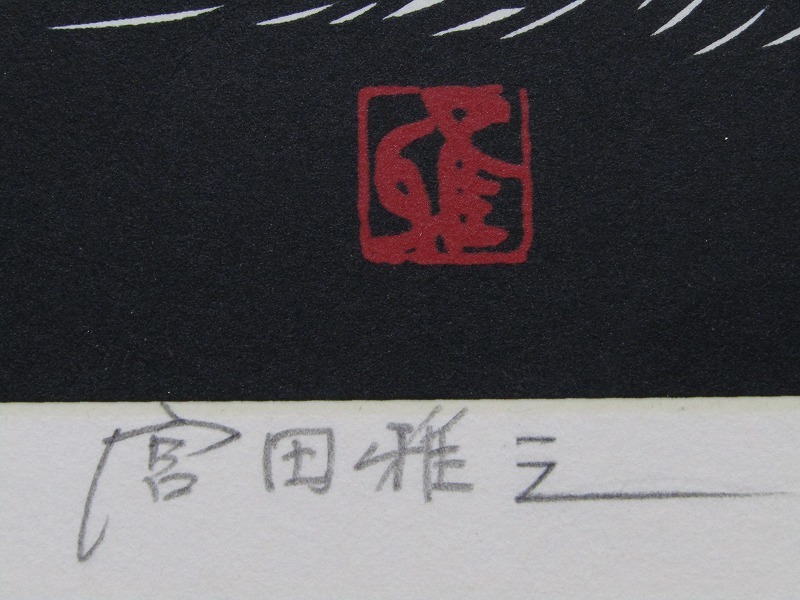 雅
宮田雅之